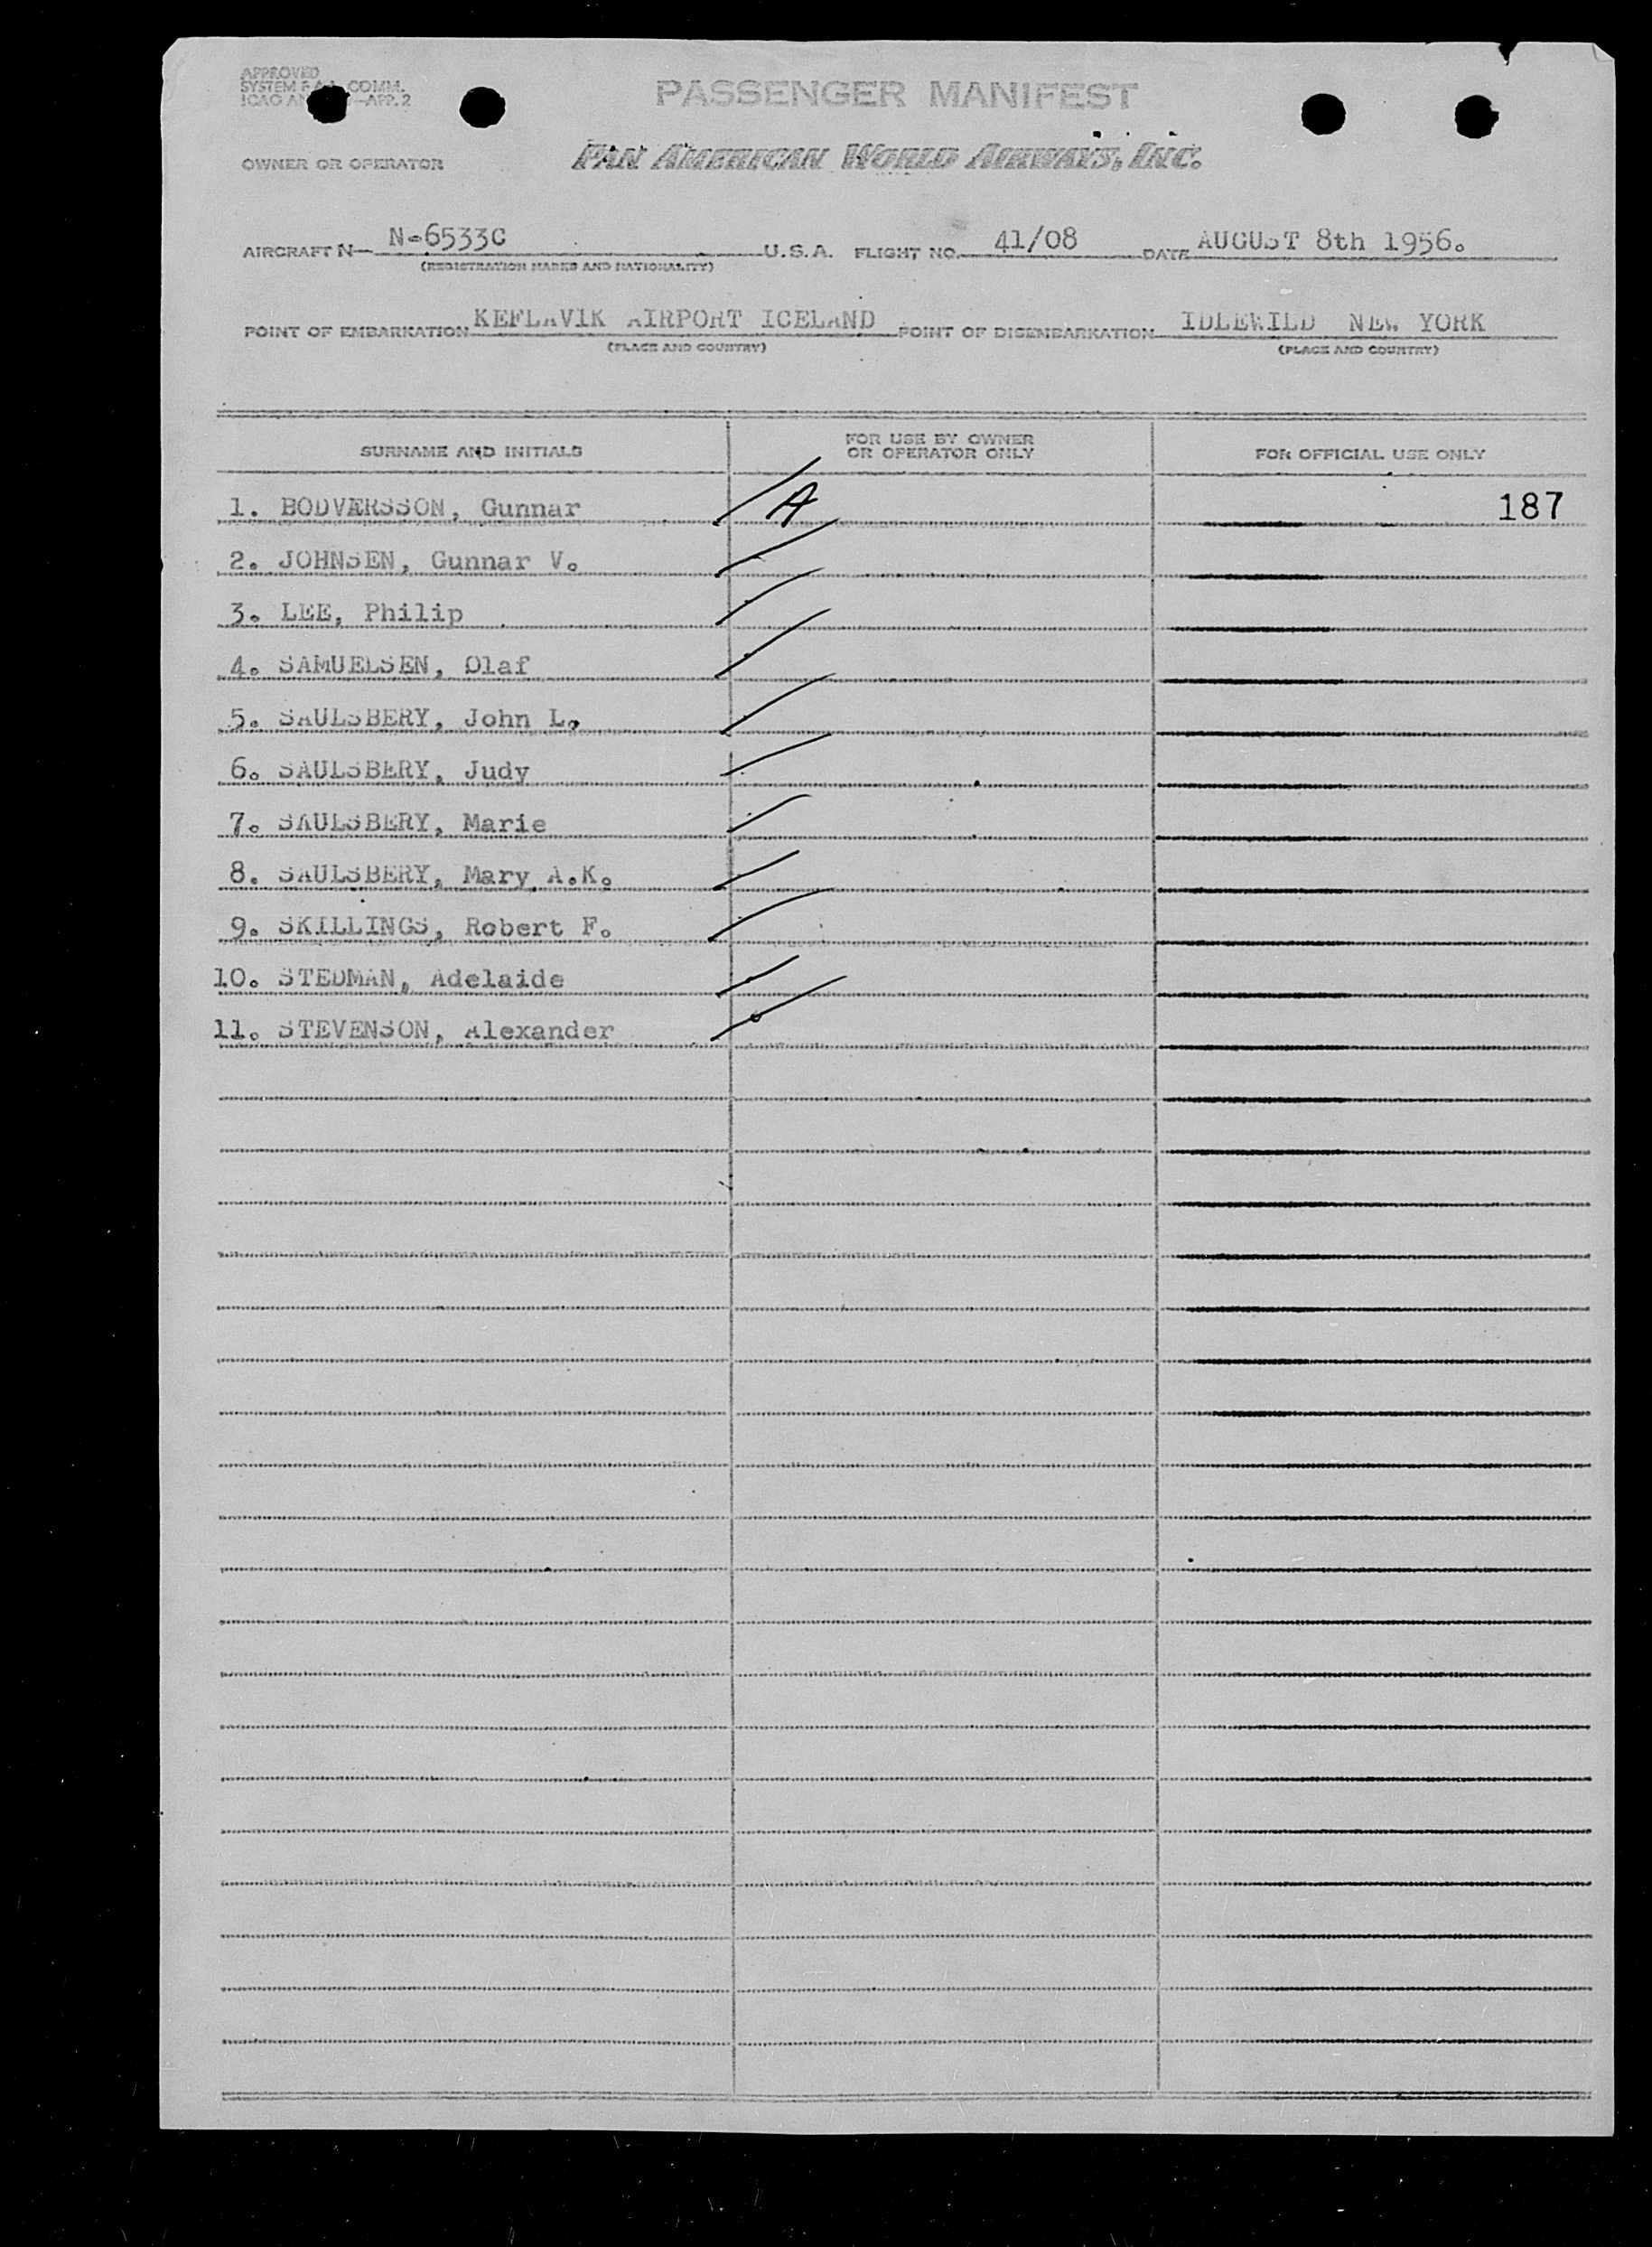 APPROVED
SYSTEM COMM.
ICAO —APP. 2
PASSENGER MANIFEST
OWNER OR OPERATOR PAN AMERICAN WORLD AIRWAYS, INC.
AIRCRAFT N— N-6533C U.S.A. FLIGHT NO. 41/08 DATE AUGUST 8th 1956.
(REGISTRATION MARKS AND NATIONALITY)
POINT OF EMBARKATION KEFLAVIK AIRPORT ICELAND POINT OF DISEMBARKATION IDLEWILD NEW YORK
(PLACE AND COUNTRY) (PLACE AND COUNTRY)
SURNAME AND INITIALS FOR USE BY OWNER OR OPERATOR ONLY FOR OFFICIAL USE ONLY
1. BODVERSSON, Gunnar A 187
2. JOHNSEN, Gunnar V.
3. LEE, Philip
4. SAMUELSEN, Olaf
5. SAULSBERY, John L.
6. SAULSBERY, Judy
7. SAULSBERY, Marie
8. SAULSBERY, Mary A.K.
9. SKILLINGS, Robert F.
10. STEDMAN, Adelaide
11. STEVENSON, Alexander